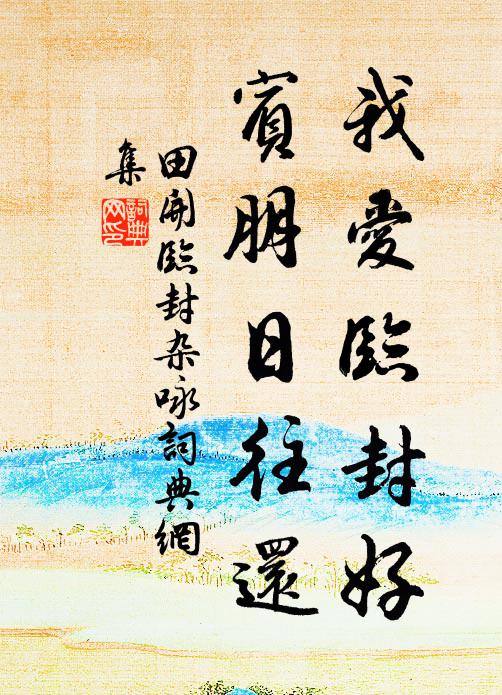 我愛臨封好
賓朋日往還
田開臨封杂咏詞典網
集
詞典
网印